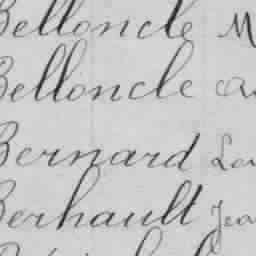 Belloncle M
Belloncle
Bernard
Berhault Jea